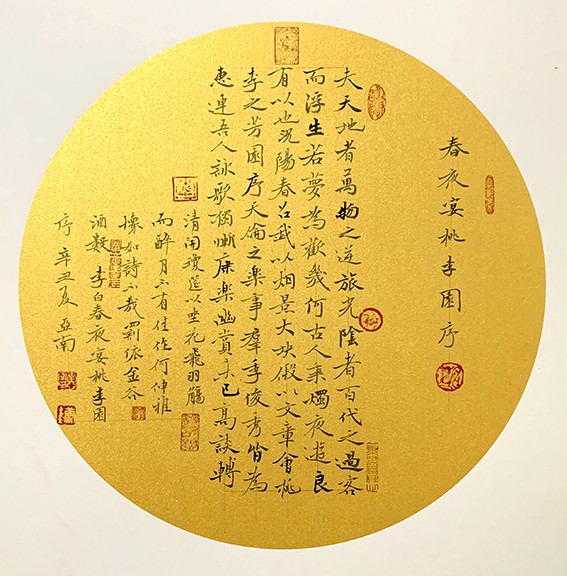 春夜宴桃李園序
夫天地者萬物之逆旅光陰者百代之過客
而浮生若夢為歡幾何古人秉燭夜遊良
有以也況陽春召我以烟景大塊假以文章會桃
李之芳園序天倫之樂事羣季俊秀皆為
惠連吾人詠歌獨慚康樂幽賞未已高談轉
清開瓊筵以坐花飛羽觴
而醉月不有佳作何伸雅
懷如詩不成罰依金谷
酒數 李白春夜宴桃李園
序 辛丑夏亞南